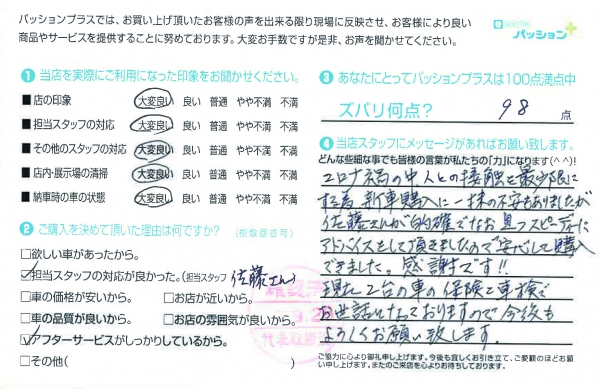 パッションプラスでは、お買い上げ頂いたお客様の声を出来る限り現場に反映させ、お客様により良い
商品やサービスを提供することに努めております。大変お手数ですが是非、お声を聞かせてください。
パッション
1 当店を実際にご利用になった印象をお聞かせください。
■店の印象 大変良い 良い 普通 やや不満 不満
■担当スタッフの対応 大変良い 良い 普通 やや不満 不満
■その他のスタッフの対応 大変良い 良い 普通 やや不満 不満
■店内・展示場の清掃 大変良い 良い 普通 やや不満 不満
■納車時の車の状態 大変良い 良い 普通 やや不満 不満
2 ご購入を決めて頂いた理由は何ですか? (複数回答可)
□欲しい車があったから。
☑担当スタッフの対応が良かった。(担当スタッフ 佐藤さん)
□車の価格が安いから。 □お店が近いから。
□車の品質が良いから。 □お店の雰囲気が良いから。
☑アフターサービスがしっかりしているから。
□その他(
3 あなたにとってパッションプラスは100点満点中
ズバリ何点? 98 点
4 当店スタッフにメッセージがあればお願い致します。
どんな些細な事でも皆様の言葉が私たちの「力」になります(^^)!
コロナ禍の中人との接触を最少限に
する為、新車購入に一抹の不安もありましたが
佐藤さんが的確でなお且つスピーディーに
アドバイスをして頂きましたので安心して購入
できました。感謝です!!
現在2台の車の保険と車検で
お世話になっておりますので今後も
よろしくお願い致します。
ご協力に心より御礼申し上げます。今後も宜しくお引き立て、ご愛顧のほどお願
い申し上げます。またのご来店を心よりお待ちしております。